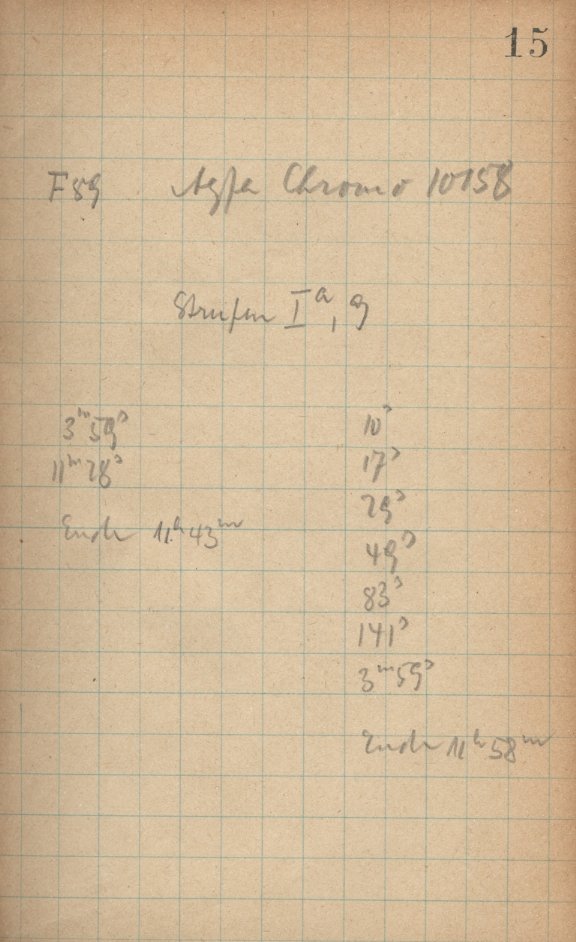 15
F59 Agfa Chromo 10158
Streifen I a, g
3m 59s
11m 28s
Ende 11h 43m
10s
17s
29s
49s
83s
141s
3m 59s
Ende 11h 58m